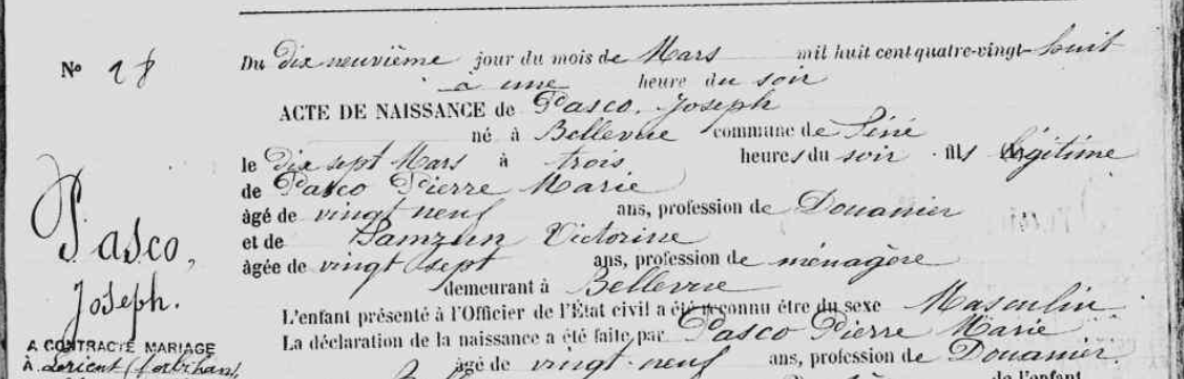 Nº 28
Du dix neuvième jour du mois de Mars mil huit cent quatre-vingt-huit
à une heure du soir
ACTE DE NAISSANCE de Pasco, Joseph
né à Bellevue commune de Séné
le dix sept Mars à trois heures du soir fils légitime
de Pasco Pierre Marie
âgé de vingt neuf ans, profession de Douanier
et de Samzun Victorine
âgée de vingt sept ans, profession de ménagère
demeurant à Bellevue
L'enfant présenté à l'Officier de l'État civil a été reconnu être du sexe Masculin
La déclaration de la naissance a été faite par Pasco Pierre Marie
âgé de vingt-neuf ans, profession de Douanier
de l'enfant
Pasco,
Joseph.
A CONTRACTÉ MARIAGE
À Lorient (Morbihan)